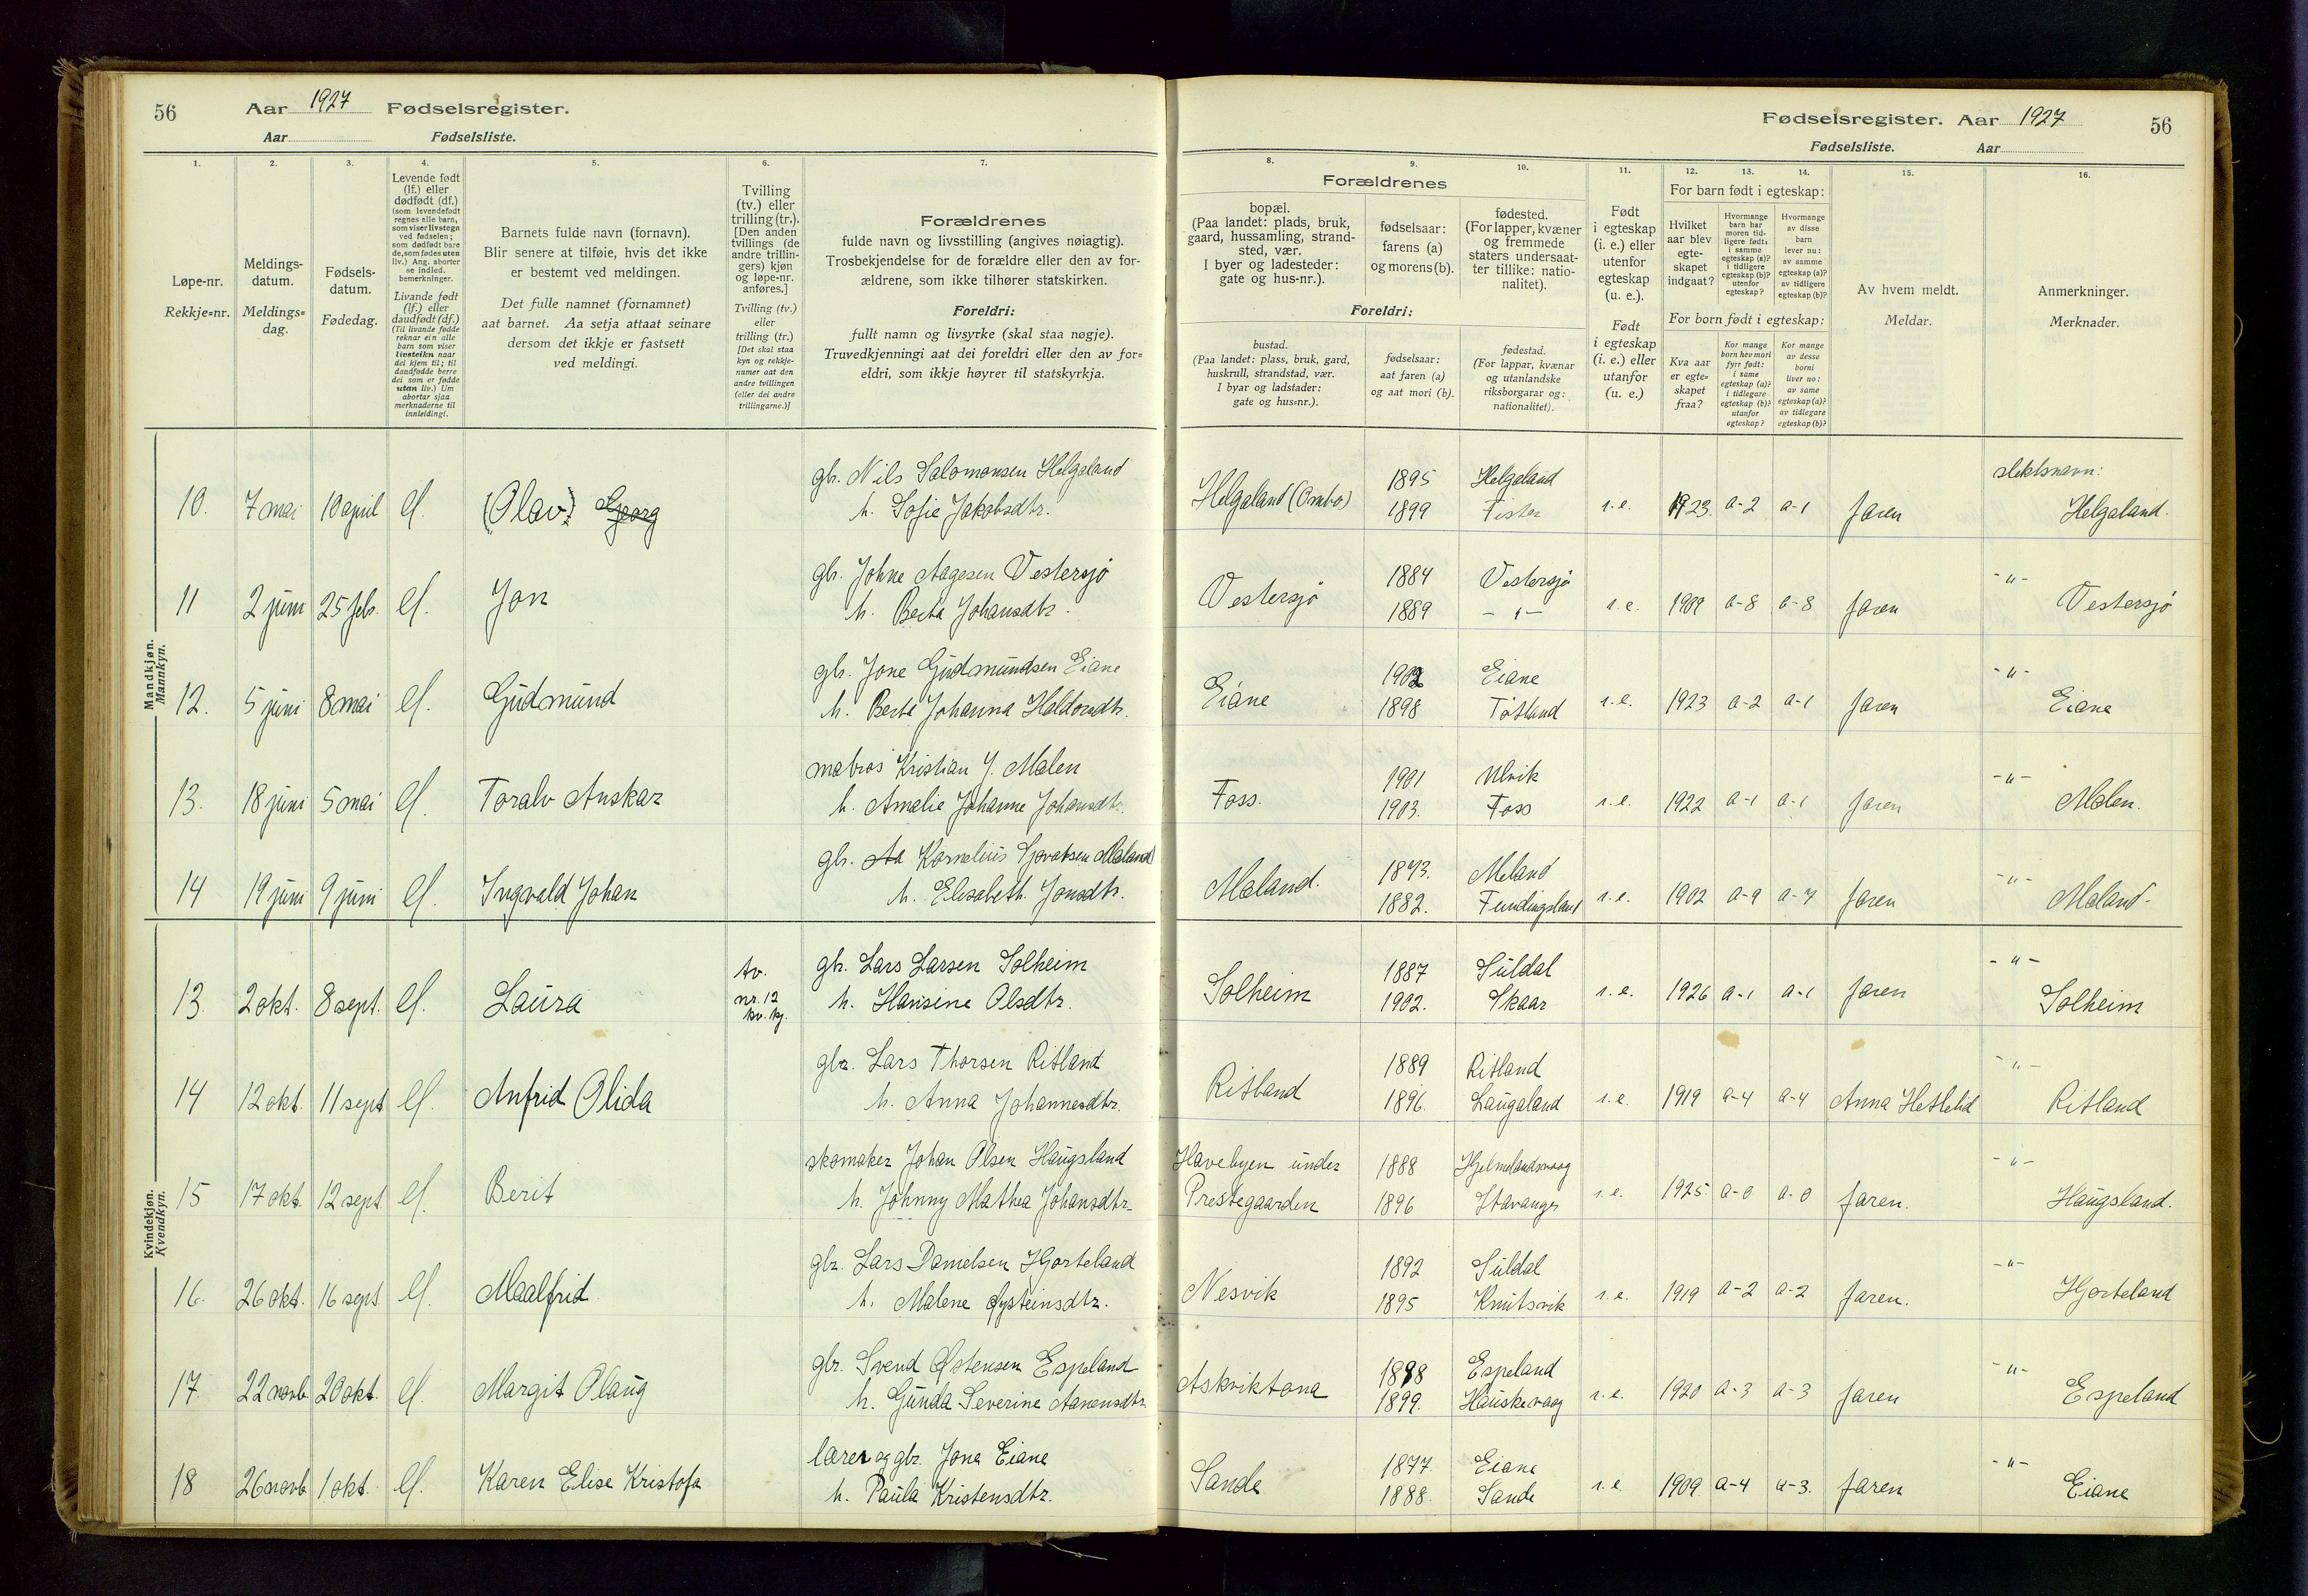 56
Aar 1927 Fødselsregister.
Aar Fødselsliste.
Fødselsregister. Aar 1927
56
Fødselsliste. Aar
1.
2.
3.
4.
5.
6.
7.
8.
9.
10.
11.
12.
13.
14.
15.
16.
Løpe-nr.
Rekkje=nr.
Meldings-
datum.
Meldings=
dag.
Fødsels-
datum.
Fødedag.
Levende født
(lf.) eller
dødfødt (df.)
(som levendefødt
regnes alle barn,
som viser livstegn
ved fødselen;
som dødfødt bare
de, som fødes uten
liv.) Ang. aborter
se indled.
bemerkninger.
Livande født
(lf.) eller
daudfødt (df.)
(Til livande fødde
reknar ein alle
barn som viser
livsteikn naar
dei kjem til; til
daudfødde berre
dei som er fødde
utan liv.) Um
abortar sjaa
merknaderne til
innleidingi.
Barnets fulde navn (fornavn).
Blir senere at tilføie, hvis det ikke
er bestemt ved meldingen.
Det fulle namnet (fornamnet)
aat barnet. Aa setja attaat seinare
dersom det ikkje er fastsett
ved meldingi.
Tvilling
(tv.) eller
trilling (tr.).
[Den anden
tvillings (de
andre trillin-
gers) kjøn
og løpe-nr.
anføres.]
Tvilling (tv.)
eller
trilling (tr.)
[Det skal staa
kyn og rekkje-
numer aat den
andre tvillingen
(eller dei andre
trillingarne.)]
Forældrenes
fulde navn og livsstilling (angives nøiagtig).
Trosbekjendelse for de forældre eller den av for-
ældrene, som ikke tilhører statskirken.
Foreldri:
fullt namn og livsyrke (skal staa nøgje).
Truvedkjenningi aat dei foreldri eller den av for=
eldri, som ikkje høyrer til statskyrkja.
Forældrenes
bopæl.
(Paa landet: plads, bruk,
gaard, hussamling, strand-
sted, vær.
I byer og ladesteder:
gate og hus-nr.).
fødselsaar:
farens (a)
og morens (b).
fødested.
(For lapper, kvæner
og fremmede
staters undersaat-
ter tillike: natio-
nalitet).
Foreldri:
bustad.
(Paa landet: plass, bruk, gard,
huskrull, strandstad, vær.
I byar og ladstader:
gate og hus=nr.).
fødselsaar:
aat faren (a)
og aat mori (b).
fødestad.
(For lappar, kvænar
og utanlandske
riksborgarar og:
nationalitet).
Født
i egteskap
(i. e.) eller
utenfor
egteskap
(u. e.).
Født
i egteskap
(i. e.) eller
utanfor
(u. e.)
For barn født i egteskap:
Hvilket
aar blev
egte-
skapet
indgaat?
Hvormange
barn har
moren tid-
ligere født:
i samme
egteskap (a)?
i tidligere
egteskap (b)?
utenfor
egteskap?
Hvormange
av disse
barn
lever nu:
av samme
egteskap (a)?
av tidligere
egteskap (b)?
For born født i egteskap:
Kva aar
er egte=
skapet
fraa?
Kor mange
born hev mori
fyrr født:
i same
egteskap (a)?
i tidlegare
egteskap (b)?
utanfor
egteskap?
Kor mange
av desse
borni
liver no:
av same
egteskap (a)?
av tidlegare
egteskap (b)?
Av hvem meldt.
Meldar.
Anmerkninger.
Merknader.
Mandkjøn.
Mannkyn.
10. 7 mai 10 april lf. (Olav) Georg gbr. Nils Salomonsen Helgaland
h. Sofie Jakobsdtr.
Helgaland (Ombo) 1895 Helgaland
1899 Tister i.e. 1923 a-2 a-1 faren slektsnavn:
Helgaland.
11 2 juni 25 febr. lf. Jon gbr. Johne Aagesen Vestersjø
h. Berta Johansdtr.
Vestersjø 1884 Vestersjø
1889 -"- i.e. 1909 a-8 a-8 faren -"-
Vestersjø
12. 5 juni 8 mai lf. Gudmund gbr. Jone Gudmundsen Eiane
h. Berte Johanna Haldorsdtr.
Eiane 1902 Eiane
1898 Tøtland i.e. 1923 a-2 a-1 faren -"-
Eiane
13. 18 juni 5 mai lf. Toralv Anskar matros Kristian J. Malen
h. Amalie Johanne Johansdtr.
Foss. 1901 Ulvik
1903. Foss i.e. 1922 a-1 a-1 faren -"-
Malen.
14 19 juni 9 juni lf. Ingvald Johan gbr. Aa Kornelius Mæland
h. Elisabeth Jonsdtr.
Mæland. 1873. Mæland
1882. Fundingsland i.e. 1902 a-9 a-7 faren -"-
Mæland.
Kvindekjøn.
Kvendkyn.
13. 2 okt. 8 sept. lf. Laura tv.
nr. 12
kv. kj.
gbr. Lars Larsen Solheim
h. Hansine Olsdtr.
Solheim 1887 Suldal
1902. Skaar i.e. 1926 a-1 a-1 faren -"-
Solheim
14 12 okt. 11 sept lf. Anfrid Olida gbr. Lars Thorsen Ritland
h. Anna Johannesdtr.
Ritland 1889 Ritland
1896. Laugaland i.e. 1919 a-4 a-4 Anna Hetlelid -"-
Ritland
15 17 okt. 12 sept. lf. Berit skomaker Johan Olsen Haugsland
h. Johnny Mathea Johansdtr.
Havebyen under
Prestegaarden
1888 Hjelmelandsvaag
1896 Stavanger i.e. 1925 a-0 a-0 faren. -"-
Haugsland.
16. 26 okt. 16 sept. lf. Maalfrid gbr. Lars Danielsen Hjorteland
h. Malene Øysteinsdtr.
Nesvik 1892 Suldal
1895 Knutsvik i.e. 1919 a-2 a-2 faren. -"-
Hjorteland
17. 22 novb. 20 okt. lf. Margit Olaug gbr. Svend Østensen Espeland
h. Gunda Severine Aanensdtr.
Askviktona 1898 Espeland
1899. Hauskevaag i.e. 1920 a-3 a-3 faren -"-
Espeland
18 26 novb. 1 okt. lf. Karen Elise Kristofa lærer og gbr. Jone Eiane
h. Paula Kristensdtr.
Sande 1877. Eiane
1888. Sande i.e. 1909 a-4 a-3. faren -"-
Eiane